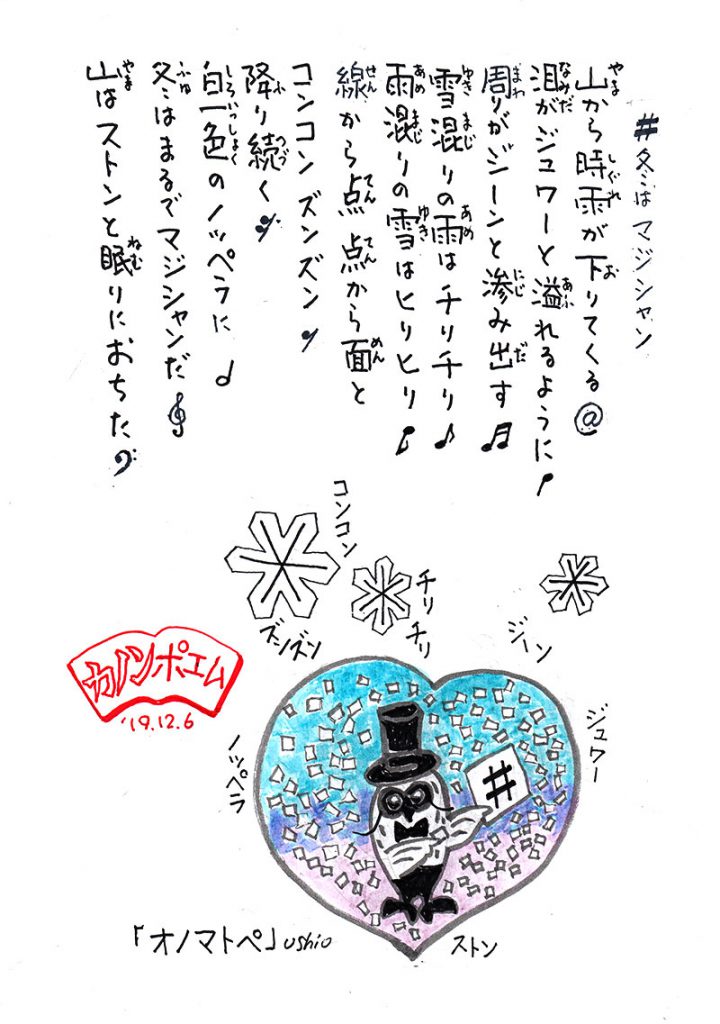 #冬はマジシャン
山から時雨が下りてくる@
泪がジュワーと溢れるように
周りがジーンと滲み出す♬
雪混りの雨はチリチリ♪
雨混りの雪はヒリヒリ
線から点 点から面と
コンコン ズンズン
降り続く
白一色のノッペラに
冬はまるでマジシャンだ𝄞
山はストンと眠りにおちた𝄢
コンコン
ズンズン
チリチリ
ジーン
ジュワー
カノンポエム
'19.12.6
ノッペラ
#
ストン
「オノマトペ」ushio